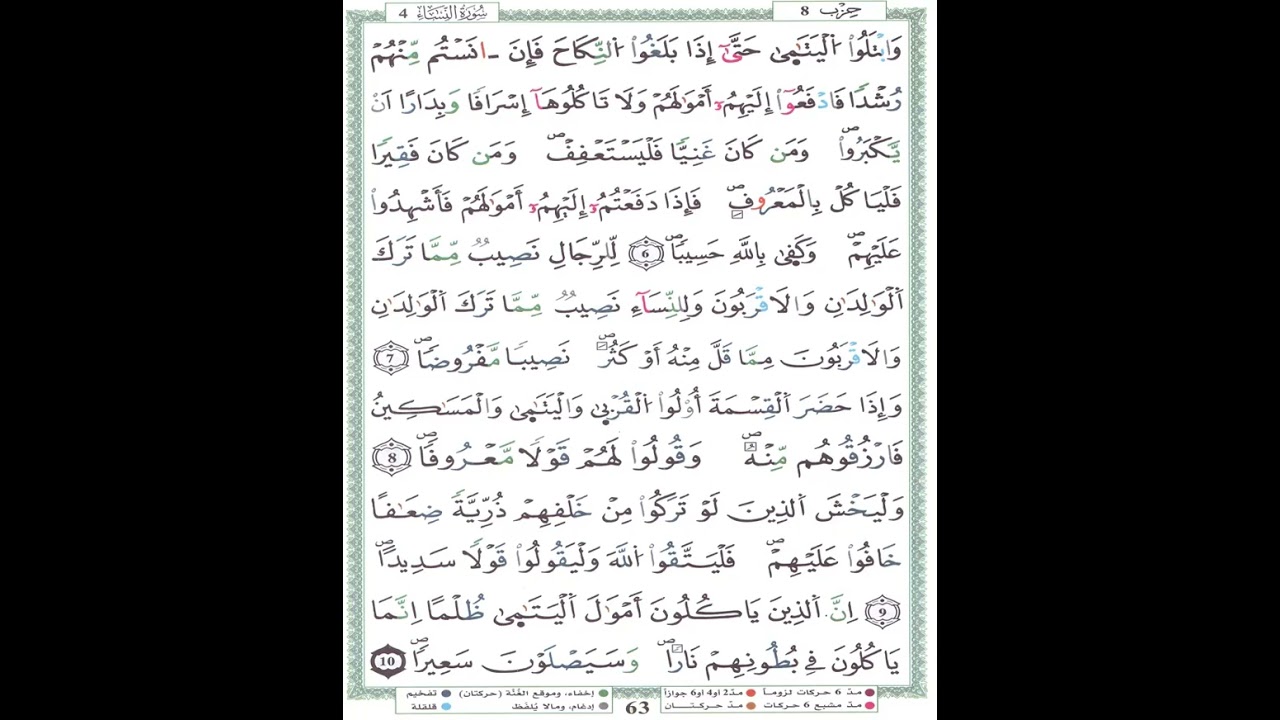 حِزْب 8
سُورَةُ النِّسَاءِ 4
وَابْتَلُواْ الْيَتَٰمىٰ حَتَّىٰٓ إِذَا بَلَغُواْ النِّكَاحَ فَإِنَ ـ انَسْتُم مِّنْهُمْ
رُشْدًا فَادْفَعُوٓاْ إِلَيْهِمُۥٓ أَمْوَٰلَهُمْ وَلَا تَاكُلُوهَآ إِسْرَافًا وَبِدَارًا اَنْ
يَّكْبَرُواْۖ وَمَن كَانَ غَنِيًّا فَلْيَسْتَعْفِفْۖ وَمَن كَانَ فَقِيرًا
فَلْيَاكُلْ بِالْمَعْرُوفِۖ فَإِذَا دَفَعْتُمُۥٓ إِلَيْهِمُۥٓ أَمْوَٰلَهُمْ فَأَشْهِدُواْ
عَلَيْهِمْۖ وَكَفىٰ بِاللَّهِ حَسِيبًاۖ 6 لِّلرِّجَالِ نَصِيبٌ مِّمَّا تَرَكَ
الْوَٰلِدَٰنِ وَالَاقْرَبُونَ وَلِلنِّسَآءِ نَصِيبٌ مِّمَّا تَرَكَ الْوَٰلِدَٰنِ
وَالَاقْرَبُونَ مِمَّا قَلَّ مِنْهُ أَوْ كَثُرَۖ نَصِيبًا مَّفْرُوضًاۖ 7
وَإِذَا حَضَرَ الْقِسْمَةَ أُوْلُواْ الْقُرْبىٰ وَالْيَتَٰمىٰ وَالْمَسَٰكِينُ
فَارْزُقُوهُم مِّنْهُۖ وَقُولُواْ لَهُمْ قَوْلًا مَّعْرُوفًاۖ 8
وَلْيَخْشَ الذِينَ لَوْ تَرَكُواْ مِنْ خَلْفِهِمْ ذُرِّيَّةً ضِعَٰفًا
خَافُواْ عَلَيْهِمْۖ فَلْيَتَّقُواْ اللَّهَ وَلْيَقُولُواْ قَوْلًا سَدِيدًاۖ
9 اِنَّ الذِينَ يَاكُلُونَ أَمْوَٰلَ الْيَتَٰمىٰ ظُلْمًا اِنَّمَا
يَاكُلُونَ فِي بُطُونِهِمْ نَارًاۖ وَسَيَصْلَوْنَ سَعِيرًاۖ 10
مدّ 6 حركات لزوماً مدّ 2 أو 4 أو 6 جوازاً
مدّ مشبع 6 حركات مدّ حركتان
63
إخفاء، ومواقع الغُنَّة (حركتان) تفخيم
إدغام، ومالا يُلفَظ قلقلة